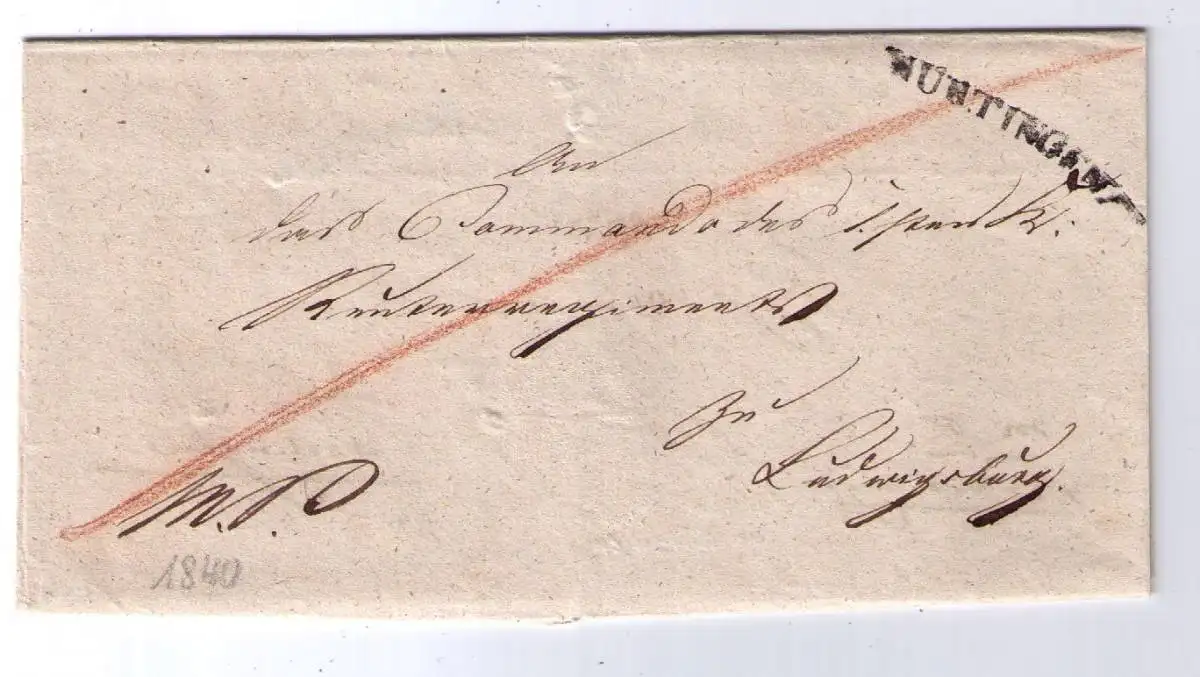 NÜRTINGEN
An
das Commando des 1. sten K:
Reuterregiments
zu
Ludwigsburg.
M. S.
1840